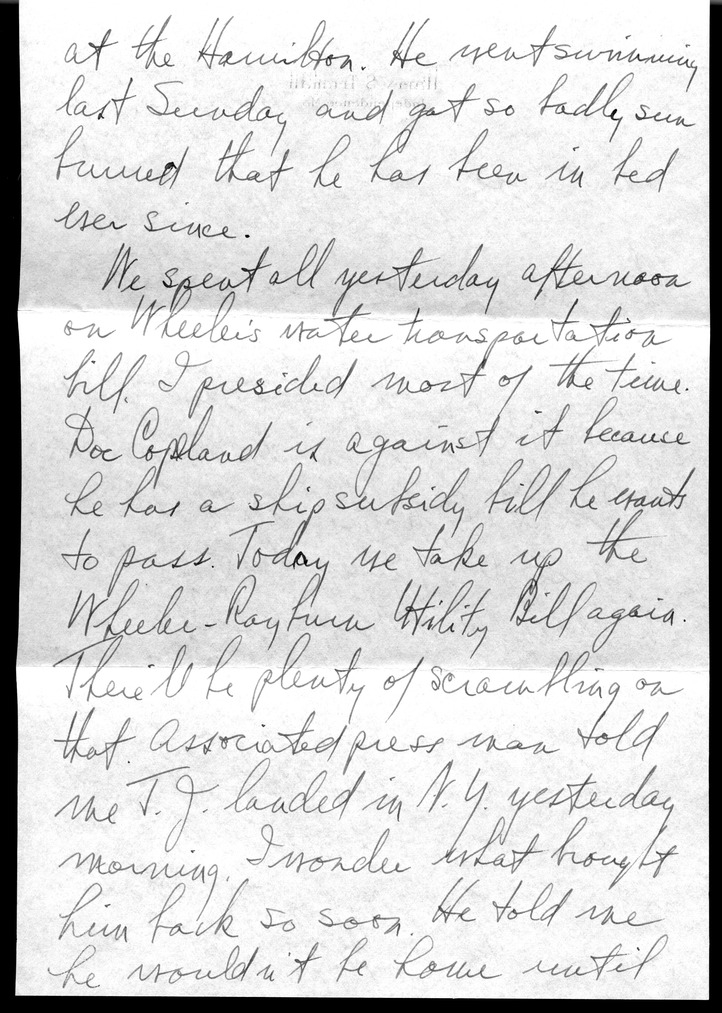 at the Hamilton. He went swimming
last Sunday and got so badly sun
burned that he has been in bed
ever since.
We spent all yesterday afternoon
on Wheeler's water transportation
bill. I presided most of the time.
Doc Copland is against it because
he has a ship subsidy bill he wants
to pass. Today we take up the
Wheeler-Rayburn Utility Bill again.
There'll be plenty of scrambling on
that. Associated press man told
me T.J. landed in N.Y. yesterday
morning. I wonder what brought
him back so soon. He told me
he wouldn't be home until